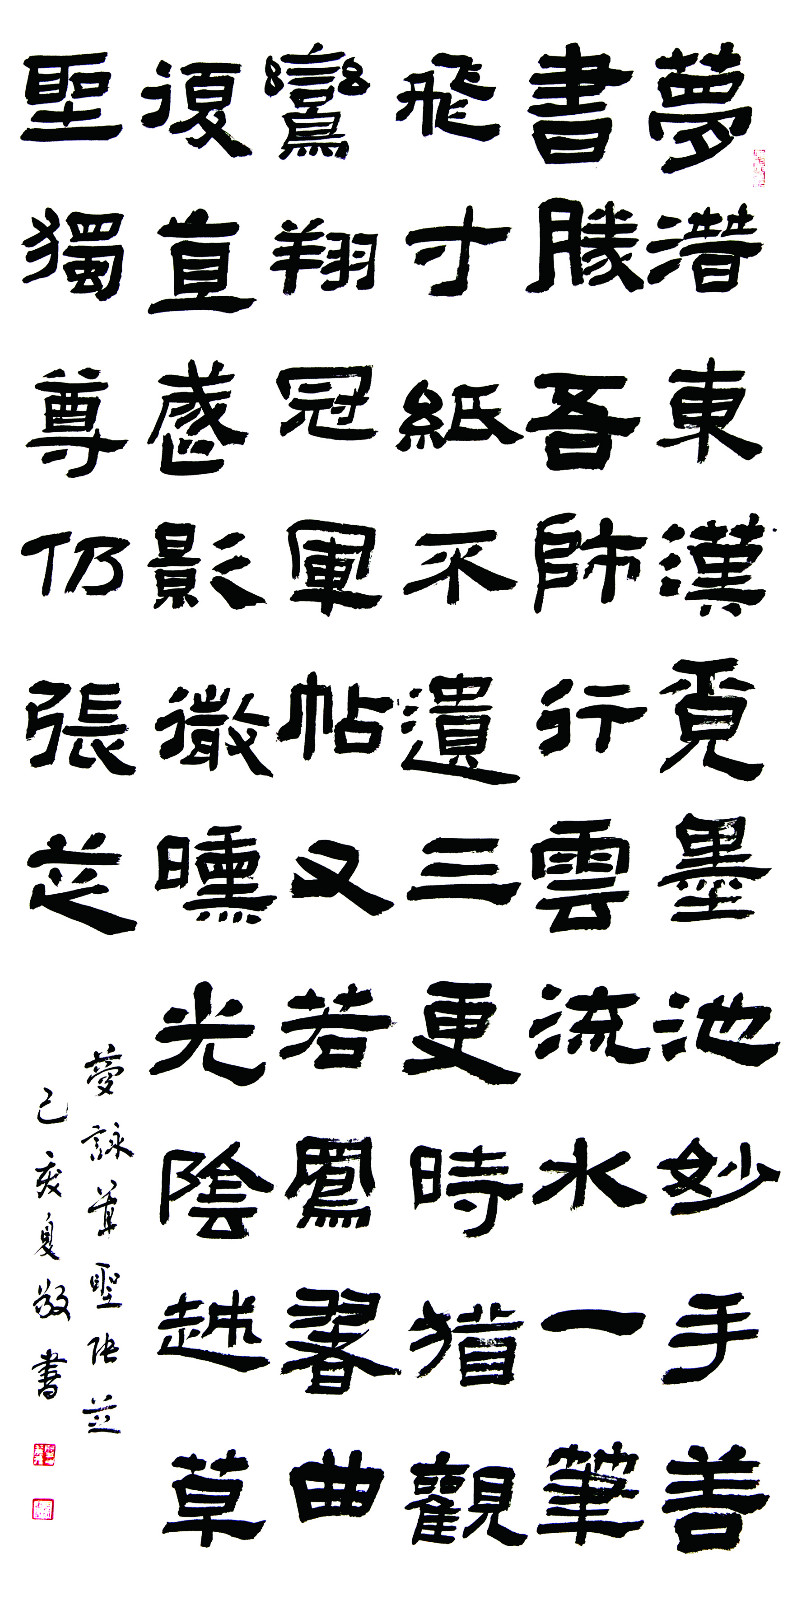 夢潜東漢覓墨池妙手善
書勝吾師行雲流水一筆
飛寸紙不遺三更時猶觀
鸞翔冠軍帖又若鳳翥曲
復直影微曛光陰越草
聖獨尊仍張芝
夢詠草聖張芝
己亥夏敬書